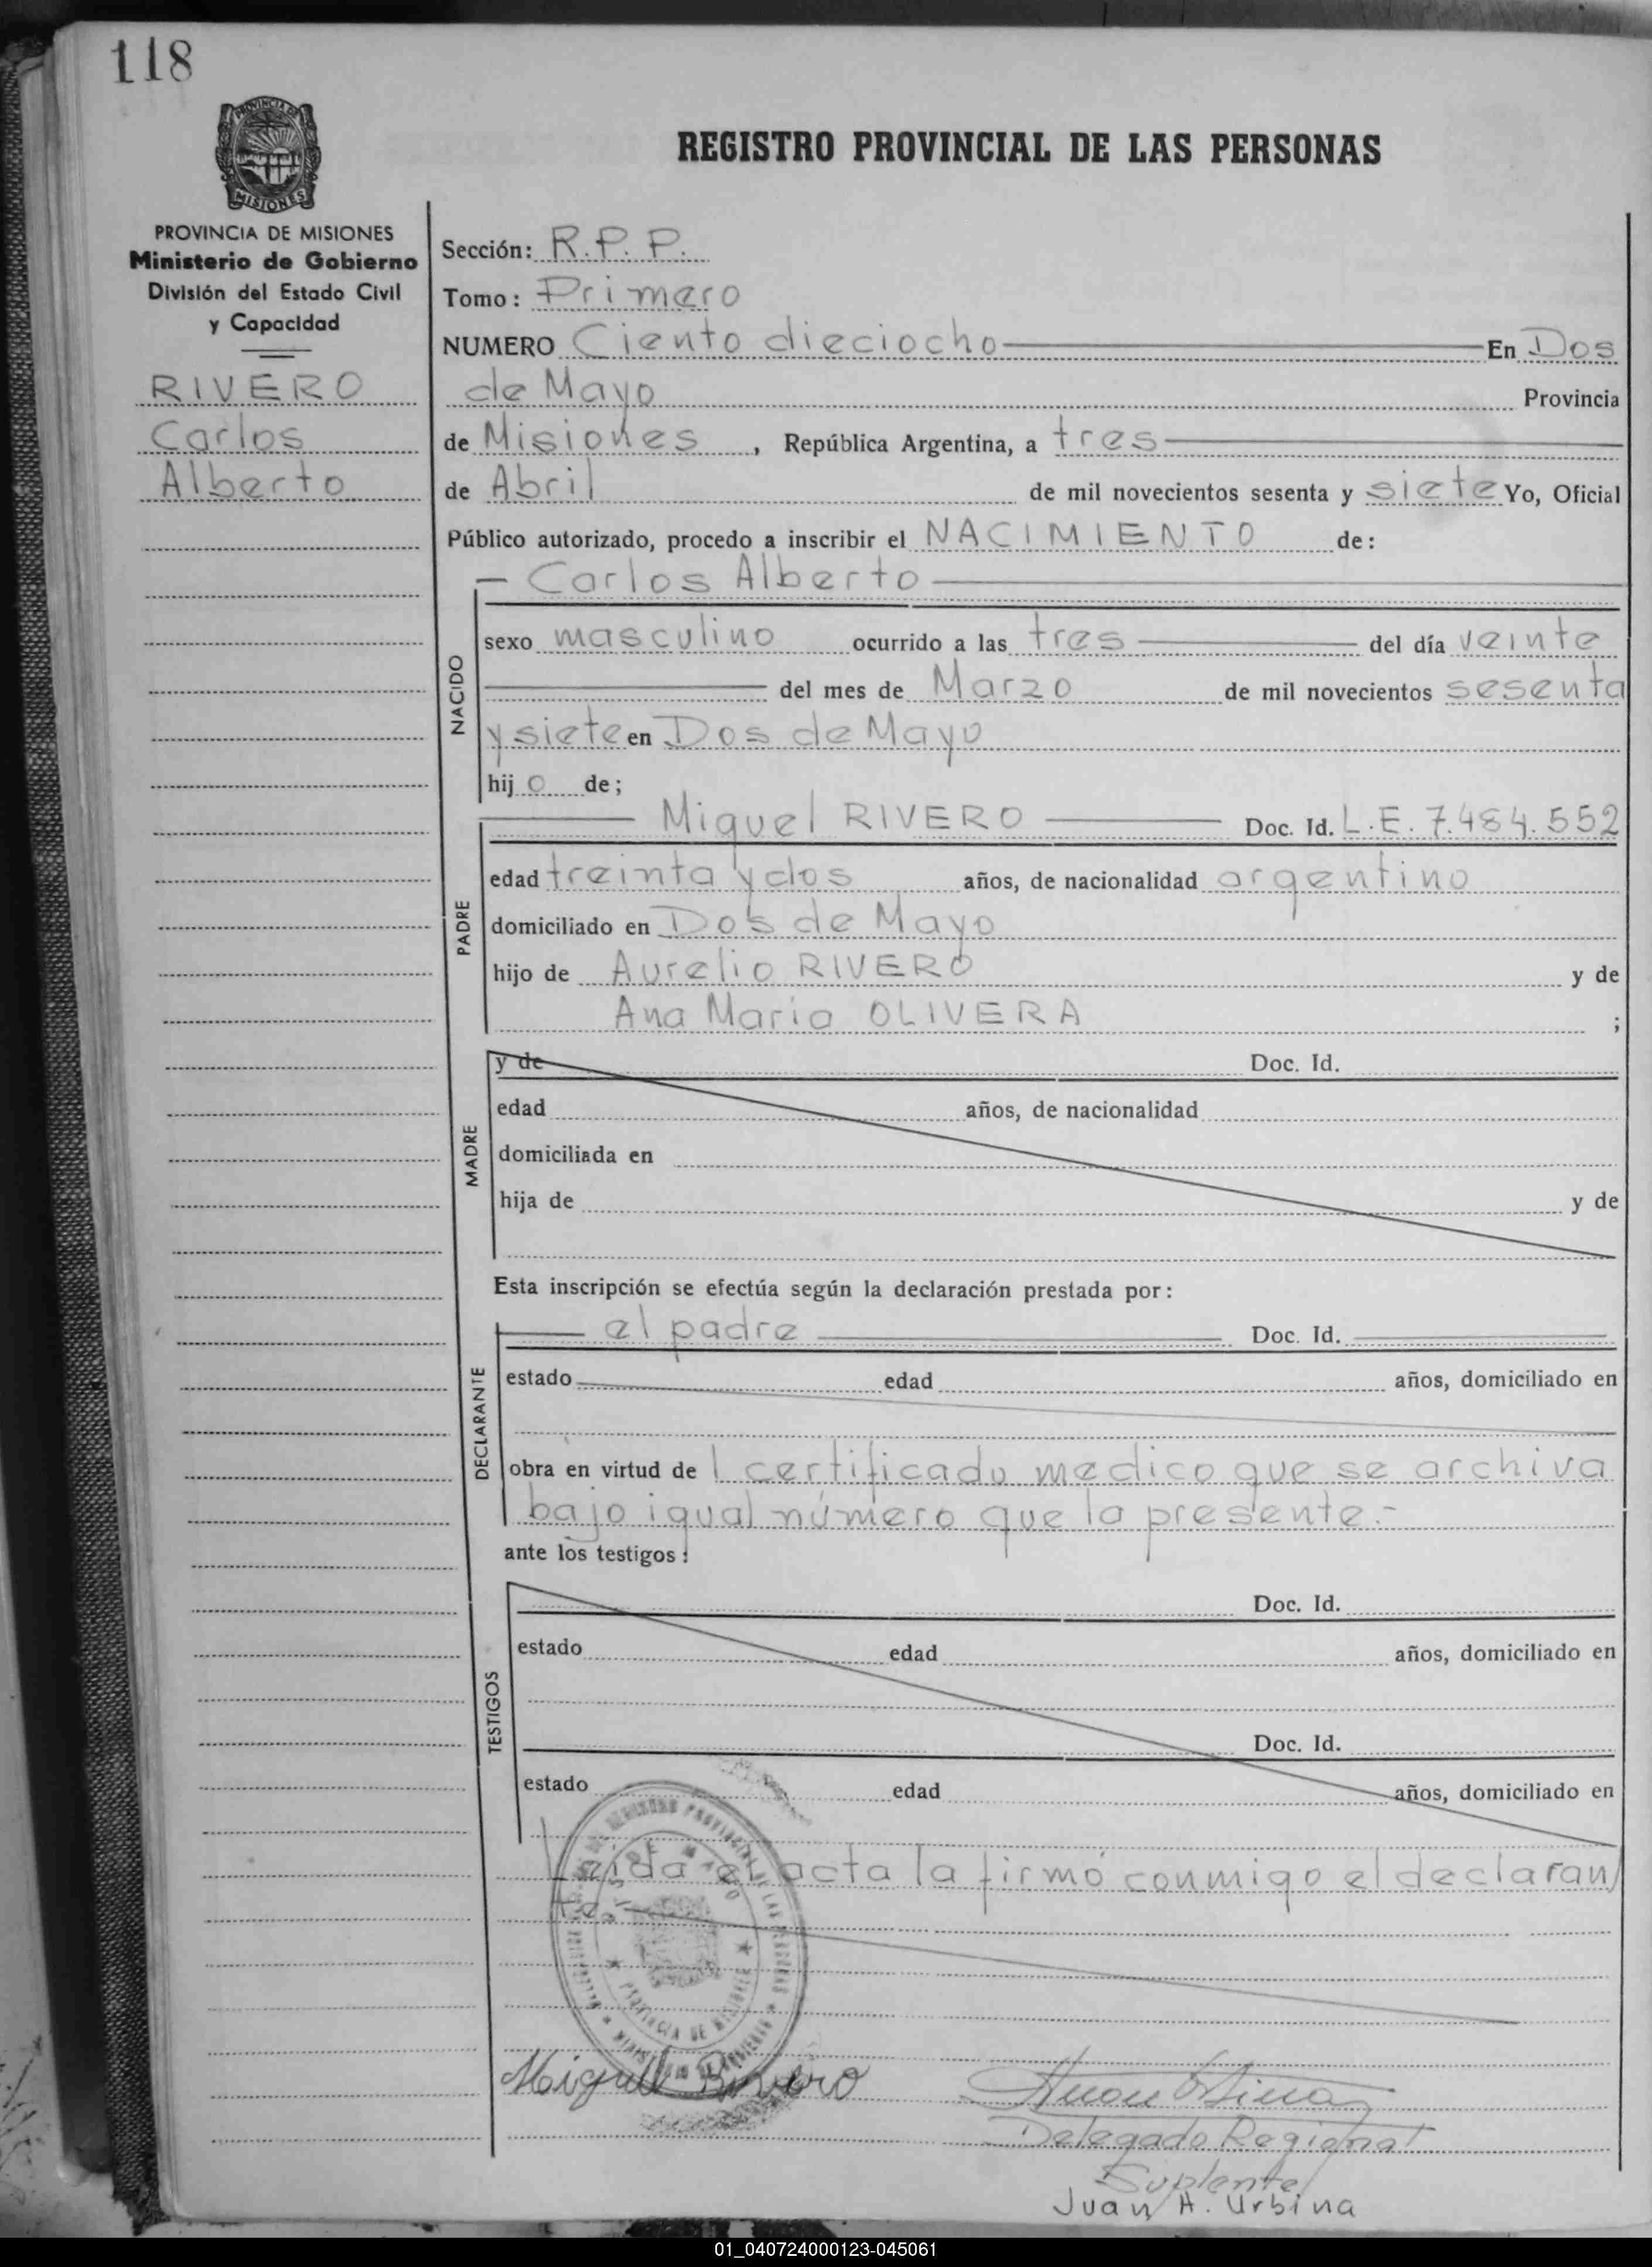 118
PROVINCIA DE
MISIONES
REGISTRO PROVINCIAL DE LAS PERSONAS
PROVINCIA DE MISIONES
Ministerio de Gobierno
División del Estado Civil
y Capacidad
RIVERO
Carlos
Alberto
Sección: R.P.P.
Tomo: Primero
NUMERO Ciento dieciocho En Dos
de Mayo Provincia
de Misiones, República Argentina, a tres
de Abril de mil novecientos sesenta y siete Yo, Oficial
Público autorizado, procedo a inscribir el NACIMIENTO de:
NACIDO
— Carlos Alberto
sexo masculino ocurrido a las tres del día veinte
del mes de Marzo de mil novecientos sesenta
y siete en Dos de Mayo
hijo de;
PADRE
Miguel RIVERO Doc. Id. L.E. 7.484.552
edad treinta y dos años, de nacionalidad argentino
domiciliado en Dos de Mayo
hijo de Aurelio RIVERO y de
Ana Maria OLIVERA ;
MADRE
y de Doc. Id.
edad años, de nacionalidad
domiciliada en
hija de y de
Esta inscripción se efectúa según la declaración prestada por:
DECLARANTE
el padre Doc. Id.
estado edad años, domiciliado en
obra en virtud de l certificado medico que se archiva
bajo igual número que la presente.-
ante los testigos:
TESTIGOS
Doc. Id.
estado edad años, domiciliado en
Doc. Id.
estado edad años, domiciliado en
Leída el acta la firmó conmigo el declaran
te
REGISTRO PROVINCIAL DE LAS PERSONAS
DOS DE MAYO
PROVINCIA DE MISIONES
MINISTERIO DE GOBIERNO
Miguel Rivero
Delegado Regional
Suplente
Juan H. Urbina
01_040724000123-045061